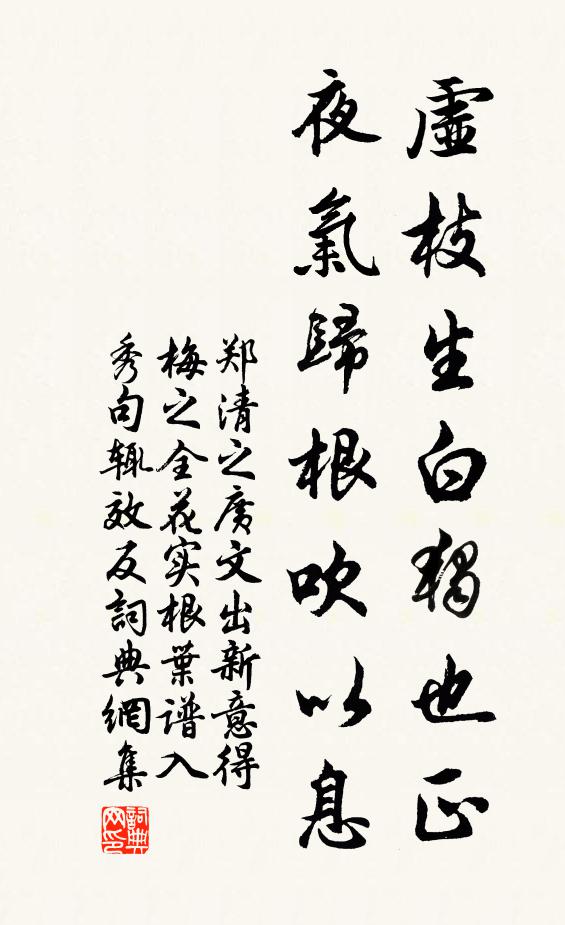 虛枝生白獨也正
夜氣歸根吹以息
郑清之廣文出新意得
梅之全花实根葉谱入
秀句辄效反詞典網集
詞典网印